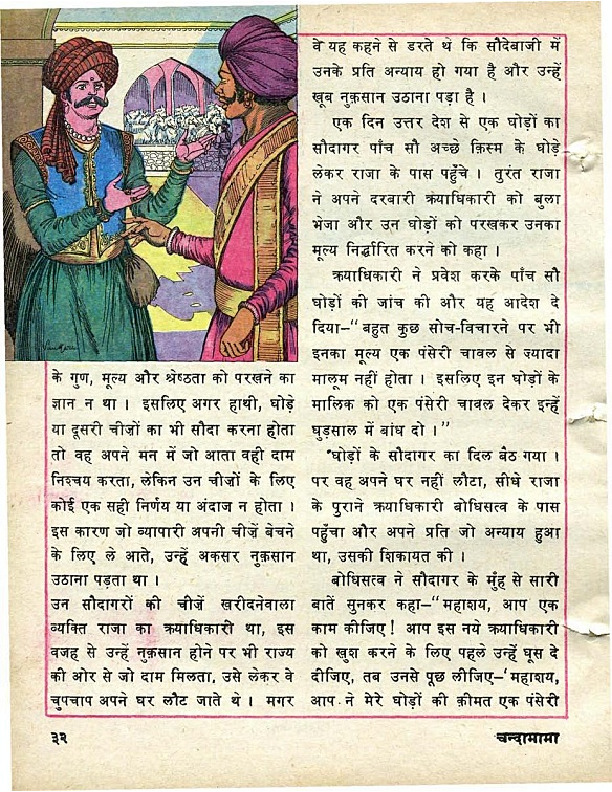 के गुण, मूल्य और श्रेष्ठता को परखने का
ज्ञान न था । इसलिए अगर हाथी, घोड़े
या दूसरी चीज़ों का भी सौदा करना होता
तो वह अपने मन में जो आता वही दाम
निश्चय करता, लेकिन उन चीज़ों के लिए
कोई एक सही निर्णय या अंदाज न होता ।
इस कारण जो व्यापारी अपनी चीज़ें बेचने
के लिए ले आते, उन्हें अकसर नुक़सान
उठाना पड़ता था ।
उन सौदागरों की चीज़ें खरीदनेवाला
व्यक्ति राजा का क्रयाधिकारी था, इस
वजह से उन्हें नुक़सान होने पर भी राज्य
की ओर से जो दाम मिलता, उसे लेकर वे
चुपचाप अपने घर लौट जाते थे । मगर
वे यह कहने से डरते थे कि सौदेबाजी में
उनके प्रति अन्याय हो गया है और उन्हें
खूब नुक़सान उठाना पड़ा है ।
एक दिन उत्तर देश से एक घोड़ों का
सौदागर पाँच सौ अच्छे क़िस्म के घोड़े
लेकर राजा के पास पहुँचे । तुरंत राजा
ने अपने दरबारी क्रयाधिकारी को बुला
भेजा और उन घोड़ों को परखकर उनका
मूल्य निर्द्धारित करने को कहा ।
क्रयाधिकारी ने प्रवेश करके पाँच सौ
घोड़ों की जांच की और यह आदेश दे
दिया–"बहुत कुछ सोच-विचारने पर भी
इनका मूल्य एक पंसेरी चावल से ज्यादा
मालूम नहीं होता । इसलिए इन घोड़ों के
मालिक को एक पंसेरी चावल देकर इन्हें
घुड़साल में बांध दो ।"
घोड़ों के सौदागर का दिल बैठ गया ।
पर वह अपने घर नहीं लौटा, सीधे राजा
के पुराने क्रयाधिकारी बोधिसत्व के पास
पहुँचा और अपने प्रति जो अन्याय हुआ
था, उसकी शिकायत की ।
बोधिसत्व ने सौदागर के मुँह से सारी
बातें सुनकर कहा–"महाशय, आप एक
काम कीजिए! आप इस नये क्रयाधिकारी
को खुश करने के लिए पहले उन्हें घूस दे
दीजिए, तब उनसे पूछ लीजिए–'महाशय,
आप ने मेरे घोड़ों की क़ीमत एक पंसेरी
३२
चन्दामामा